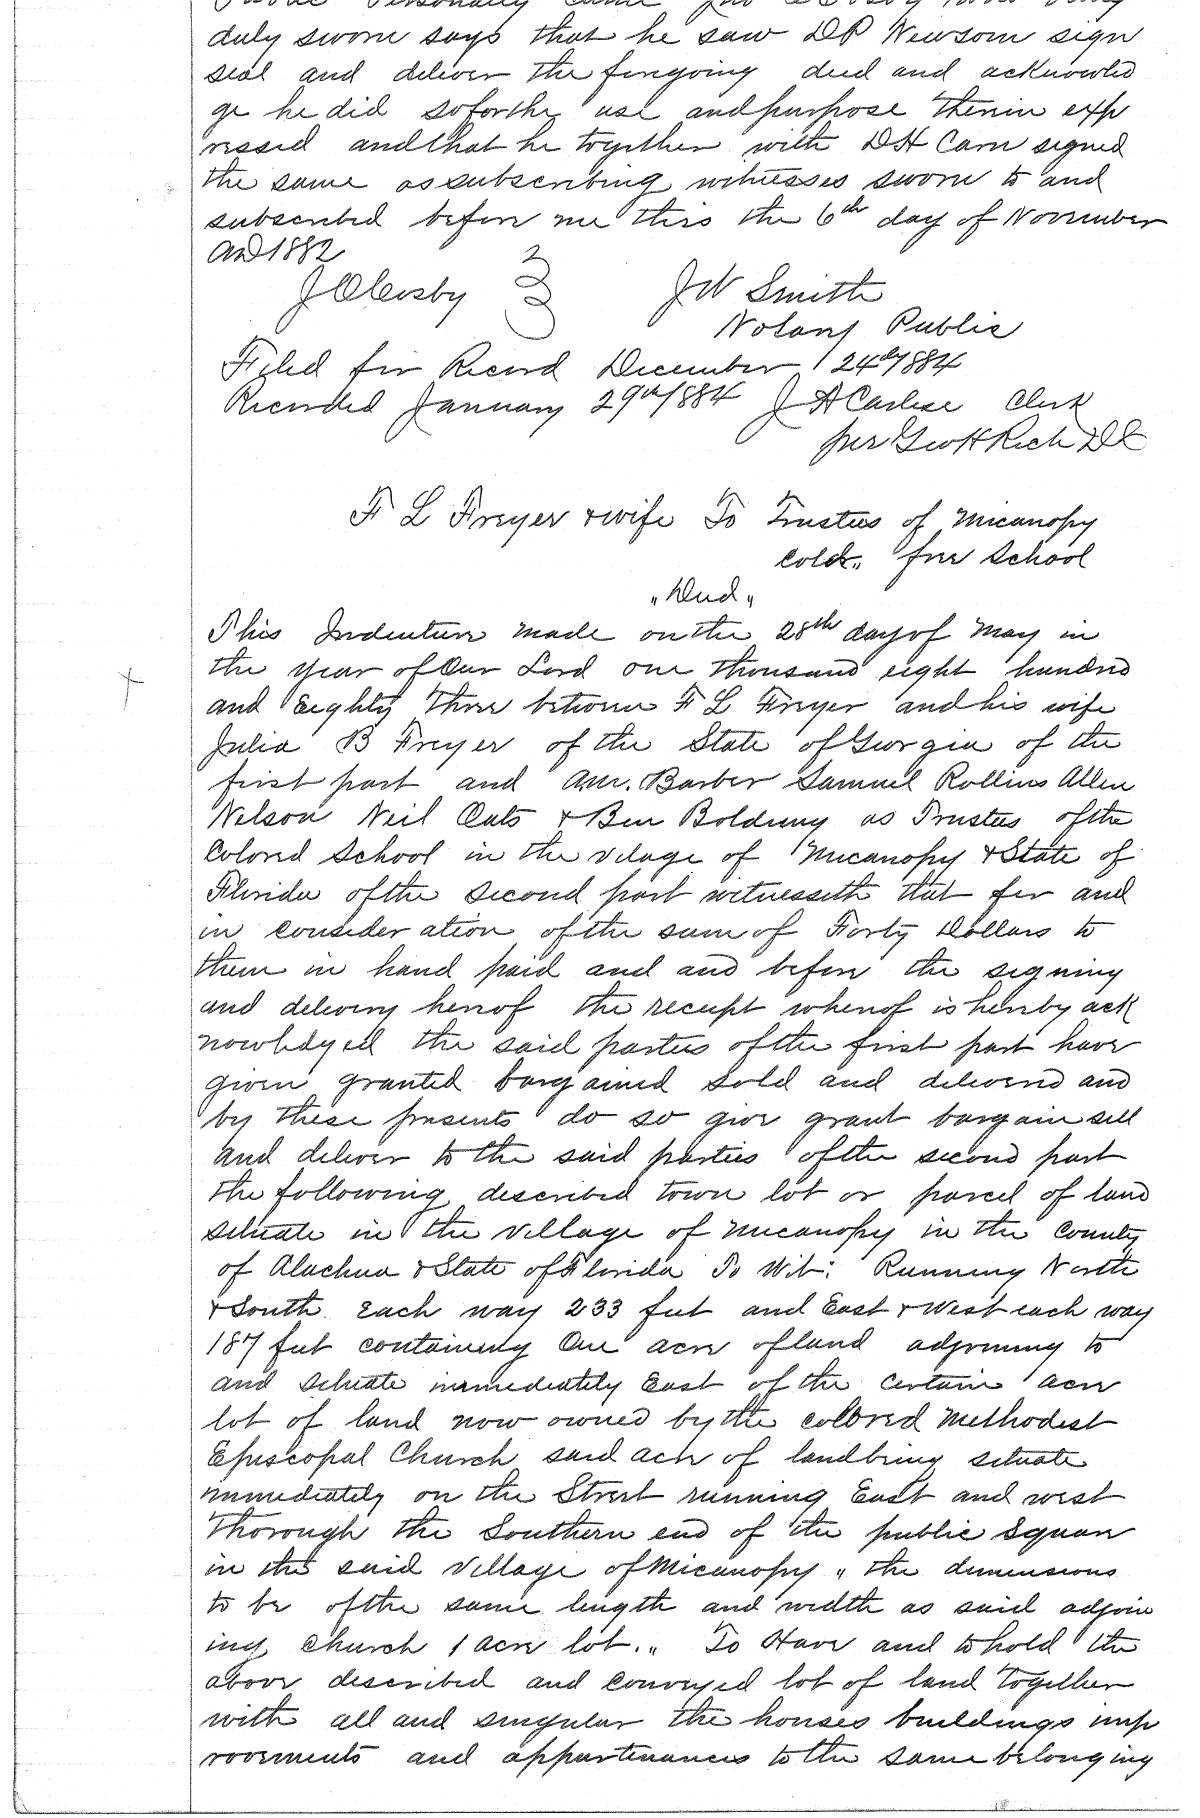 Personally came
duly sworn says that he saw D P Newsom sign
seal and deliver the forgoing deed and acknowled
ge he did so for the use and purpose therin exp
ressed and that he together with D H Carn signed
the same as subscribing witnesses sworn to and
subscribed before me this the 6th day of November
AD 1882
J O Cosby J W Smith
Notary Public
Filed for Record December 24th/884
Recorded January 29th/884 J A Carlise Clerk
per Geo H Rich D C
F L Freyer & wife To Trustees of Micanopy
Cold. free School
"Deed"
This Indenture made on the 28th day of May in
the year of Our Lord one thousand eight hundred
and Eighty three between F L Freyer and his wife
Julia B Freyer of the State of Georgia of the
first part and Am. Barber Samuel Rollins Allen
Nelson Neil Oats & Ben Boldeny as Trustees of the
Colored School in the vilage of Micanopy & State of
Florida of the second part witnesseth that for and
in consideration of the sum of Forty Dollars to
them in hand paid and and before the signing
and delivery hereof the receipt whereof is hereby ack
nowledged the said parties of the first part have
given granted bargained sold and delivered and
by these presents do so give grant bargain sell
and deliver to the said parties of the second part
the following described town lot or parcel of land
situate in the Village of Micanopy in the County
of Alachua & State of Florida To Wit: Running North
& South Each way 233 feet and East & West each way
187 feet containing One acre of land adjoining to
and situate immediately East of the certain acre
lot of land now owned by the colored Methodist
Episcopal Church said acre of land being situate
immediately on the Street running East and west
Thorough the Southern end of the public Square
in the said Village of Micanopy " the dimensions
to be of the same length and width as said adjoin
ing Church 1 acre lot. " To Have and to hold the
above described and conveyed lot of land together
with all and singular the houses buildings imp
rovements and appurtenances to the same belonging